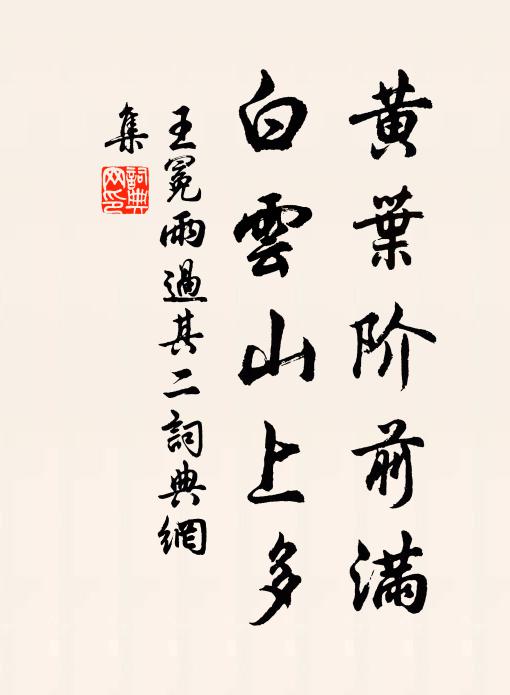 黄葉阶前滿
白雲山上多
王冕雨過其二詞典網
集
詞典
网印